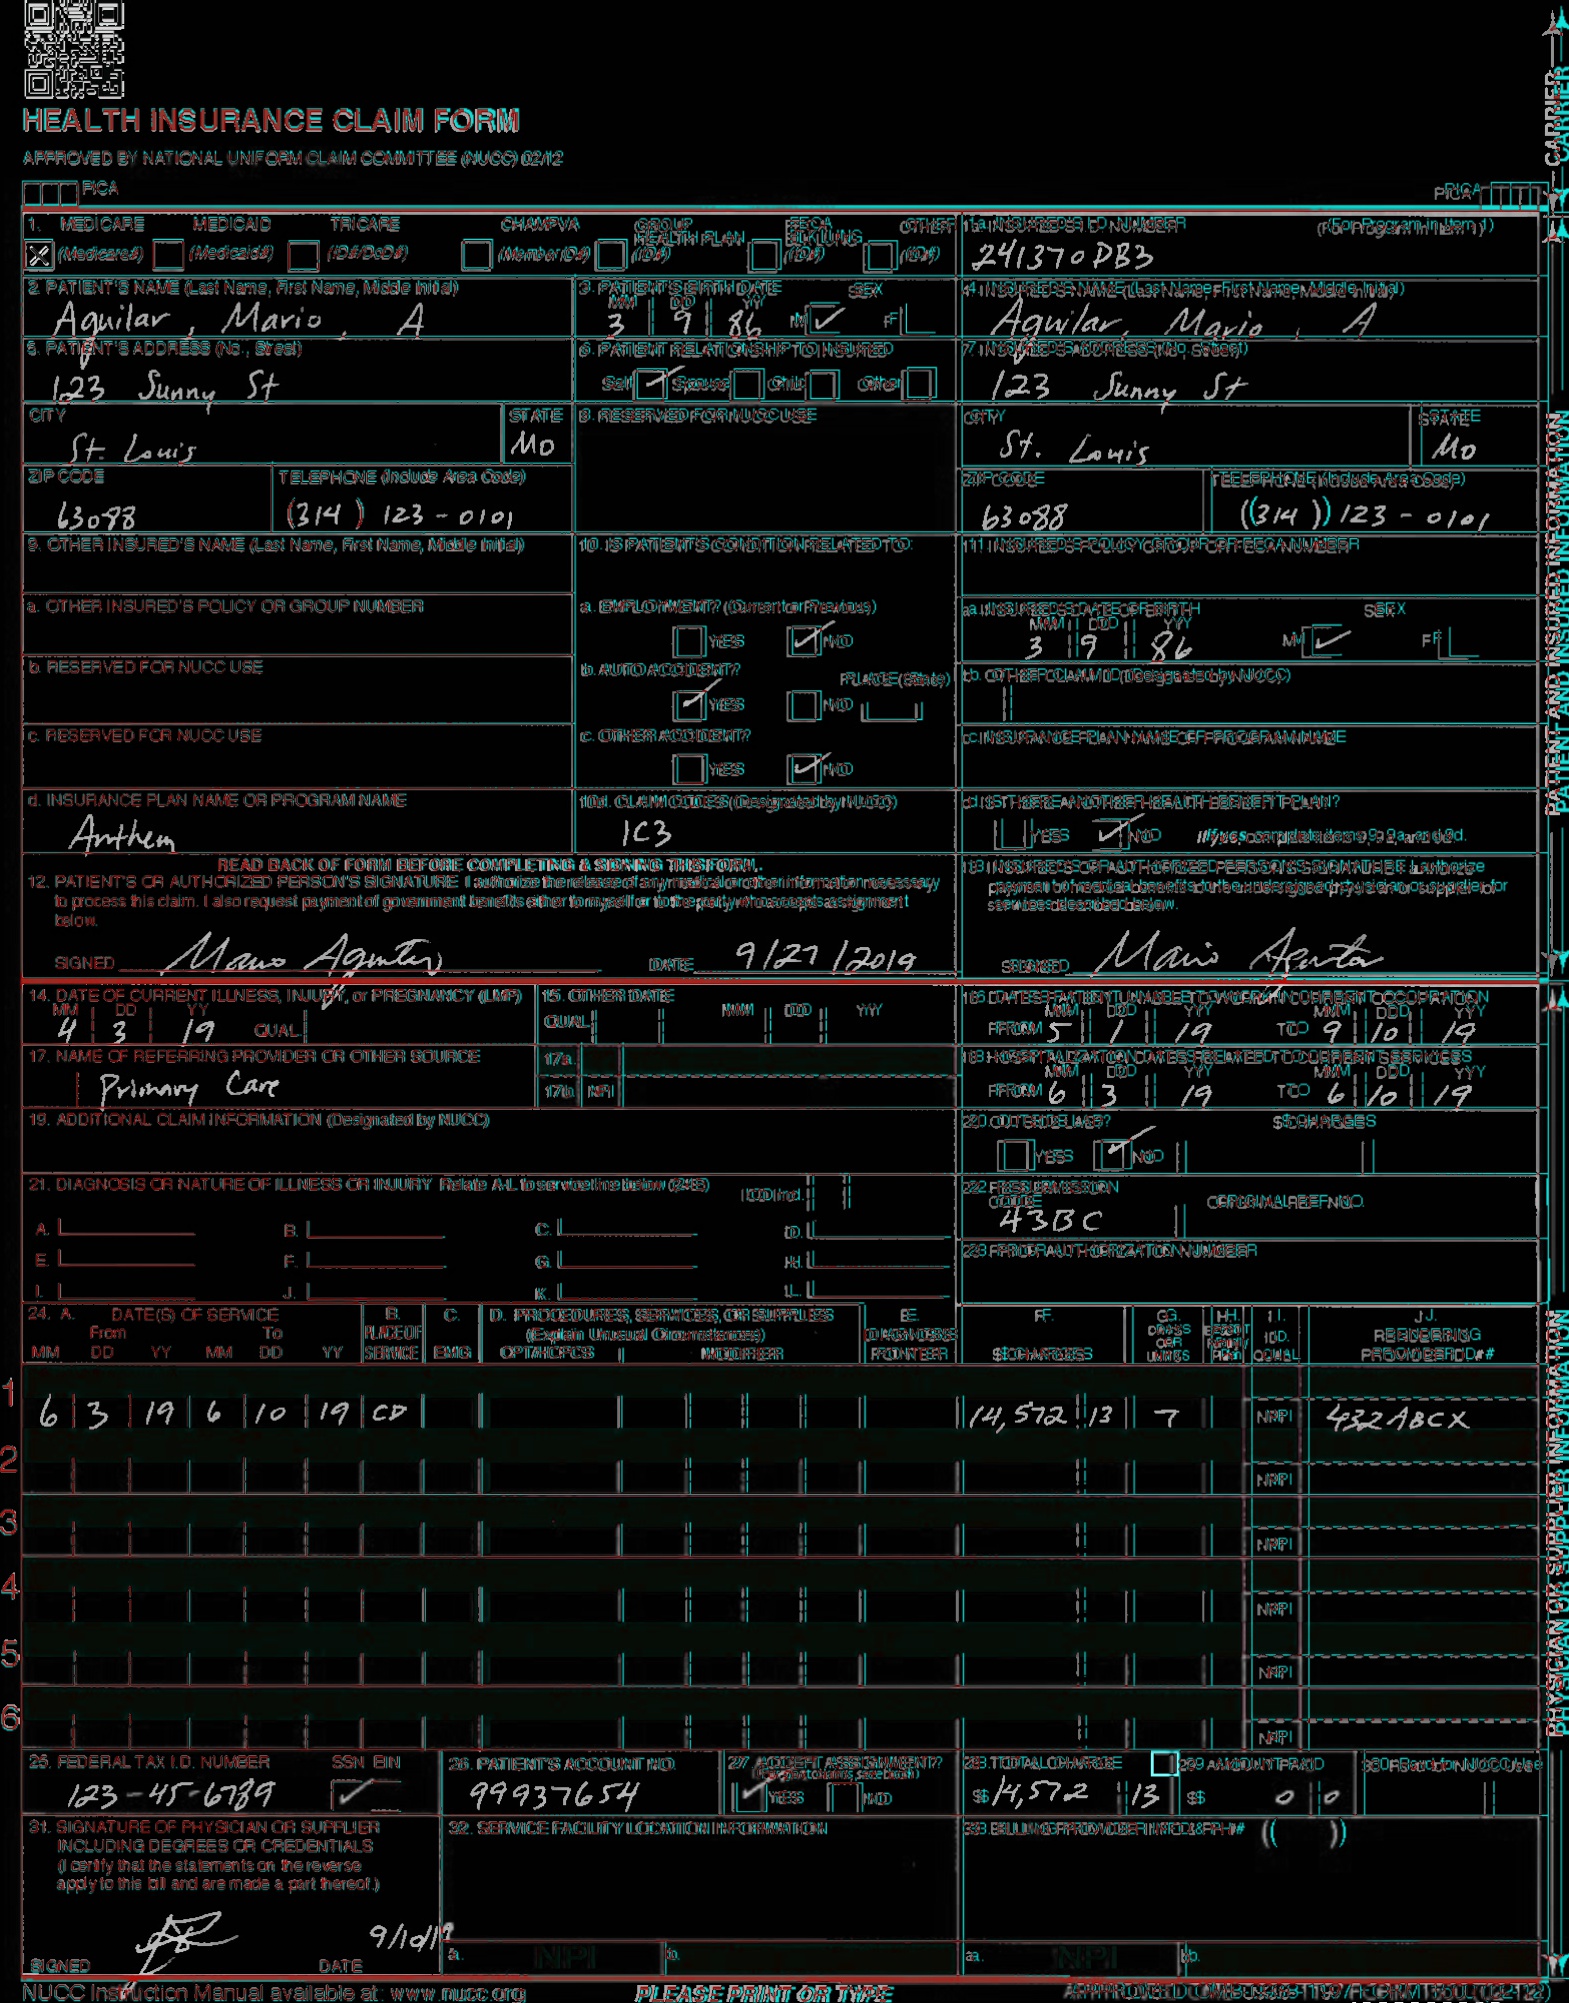 HEALTH INSURANCE CLAIM FORM
APPROVED BY NATIONAL UNIFORM CLAIM COMMITTEE (NUCC) 02/12
PICA PICA
CARRIER
1. MEDICARE MEDICAID TRICARE CHAMPVA GROUP HEALTH PLAN FECA BLK LUNG OTHER
(Medicare#) (Medicaid#) (ID#/DoD#) (Member ID#) (ID#) (ID#) (ID#)
1a. INSURED'S I.D. NUMBER (For Program in Item 1)
241370PB3
2. PATIENT'S NAME (Last Name, First Name, Middle Initial)
Aguilar, Mario, A
3. PATIENT'S BIRTH DATE SEX
MM DD YY
3 9 86 M F
4. INSURED'S NAME (Last Name, First Name, Middle Initial)
Aguilar, Mario, A
5. PATIENT'S ADDRESS (No., Street)
123 Sunny St
6. PATIENT RELATIONSHIP TO INSURED
Self Spouse Child Other
7. INSURED'S ADDRESS (No., Street)
123 Sunny St
CITY STATE
St. Louis MO
8. RESERVED FOR NUCC USE
CITY STATE
St. Louis MO
ZIP CODE TELEPHONE (Include Area Code)
63088 (314) 123-0101
ZIP CODE TELEPHONE (Include Area Code)
63088 (314) 123-0101
9. OTHER INSURED'S NAME (Last Name, First Name, Middle Initial)
10. IS PATIENT'S CONDITION RELATED TO:
11. INSURED'S POLICY GROUP OR FECA NUMBER
a. OTHER INSURED'S POLICY OR GROUP NUMBER
a. EMPLOYMENT? (Current or Previous)
YES NO
a. INSURED'S DATE OF BIRTH SEX
MM DD YY
3 9 86 M F
b. RESERVED FOR NUCC USE
b. AUTO ACCIDENT? PLACE (State)
YES NO
b. OTHER CLAIM ID (Designated by NUCC)
c. RESERVED FOR NUCC USE
c. OTHER ACCIDENT?
YES NO
c. INSURANCE PLAN NAME OR PROGRAM NAME
d. INSURANCE PLAN NAME OR PROGRAM NAME
Anthem
10d. CLAIM CODES (Designated by NUCC)
1C3
d. IS THERE ANOTHER HEALTH BENEFIT PLAN?
YES NO If yes, complete items 9, 9a, and 9d.
READ BACK OF FORM BEFORE COMPLETING & SIGNING THIS FORM.
12. PATIENT'S OR AUTHORIZED PERSON'S SIGNATURE I authorize the release of any medical or other information necessary
to process this claim. I also request payment of government benefits either to myself or to the party who accepts assignment
below.
SIGNED Mario Aguilar DATE 9/27/2019
13. INSURED'S OR AUTHORIZED PERSON'S SIGNATURE I authorize
payment of medical benefits to the undersigned physician or supplier for
services described below.
SIGNED Mario Aguilar
PATIENT AND INSURED INFORMATION
14. DATE OF CURRENT ILLNESS, INJURY, or PREGNANCY (LMP)
MM DD YY
4 3 19 QUAL.
15. OTHER DATE
QUAL. MM DD YY
16. DATES PATIENT UNABLE TO WORK IN CURRENT OCCUPATION
MM DD YY MM DD YY
FROM 5 1 19 TO 9 10 19
17. NAME OF REFERRING PROVIDER OR OTHER SOURCE
Primary Care
17a.
17b. NPI
18. HOSPITALIZATION DATES RELATED TO CURRENT SERVICES
MM DD YY MM DD YY
FROM 6 3 19 TO 6 10 19
19. ADDITIONAL CLAIM INFORMATION (Designated by NUCC)
20. OUTSIDE LAB? $ CHARGES
YES NO
21. DIAGNOSIS OR NATURE OF ILLNESS OR INJURY Relate A-L to service line below (24E)
ICD Ind.
A. B. C. D.
E. F. G. H.
I. J. K. L.
22. RESUBMISSION CODE ORIGINAL REF. NO.
43BC
23. PRIOR AUTHORIZATION NUMBER
24. A. DATE(S) OF SERVICE B. C. D. PROCEDURES, SERVICES, OR SUPPLIES E. F. G. H. I. J.
From To PLACE OF (Explain Unusual Circumstances) DIAGNOSIS DAYS OR EPSDT Family ID. RENDERING
MM DD YY MM DD YY SERVICE EMG CPT/HCPCS MODIFIER POINTER $ CHARGES UNITS Plan QUAL. PROVIDER ID. #
1
6 3 19 6 10 19 CD 14,572 13 7 NPI 432ABCX
2
NPI
3
NPI
4
NPI
5
NPI
6
NPI
25. FEDERAL TAX I.D. NUMBER SSN EIN
123-45-6789
26. PATIENT'S ACCOUNT NO.
99937654
27. ACCEPT ASSIGNMENT?
(For govt. claims, see back)
YES NO
28. TOTAL CHARGE
$ 14,572 13
29. AMOUNT PAID
$ 0 0
30. Rsvd for NUCC Use
31. SIGNATURE OF PHYSICIAN OR SUPPLIER
INCLUDING DEGREES OR CREDENTIALS
(I certify that the statements on the reverse
apply to this bill and are made a part thereof.)
SIGNED DATE 9/10/19
32. SERVICE FACILITY LOCATION INFORMATION
a. NPI b.
33. BILLING PROVIDER INFO & PH # ( )
a. NPI b.
PHYSICIAN OR SUPPLIER INFORMATION
NUCC Instruction Manual available at: www.nucc.org
PLEASE PRINT OR TYPE
APPROVED OMB-0938-1197 FORM 1500 (02-12)